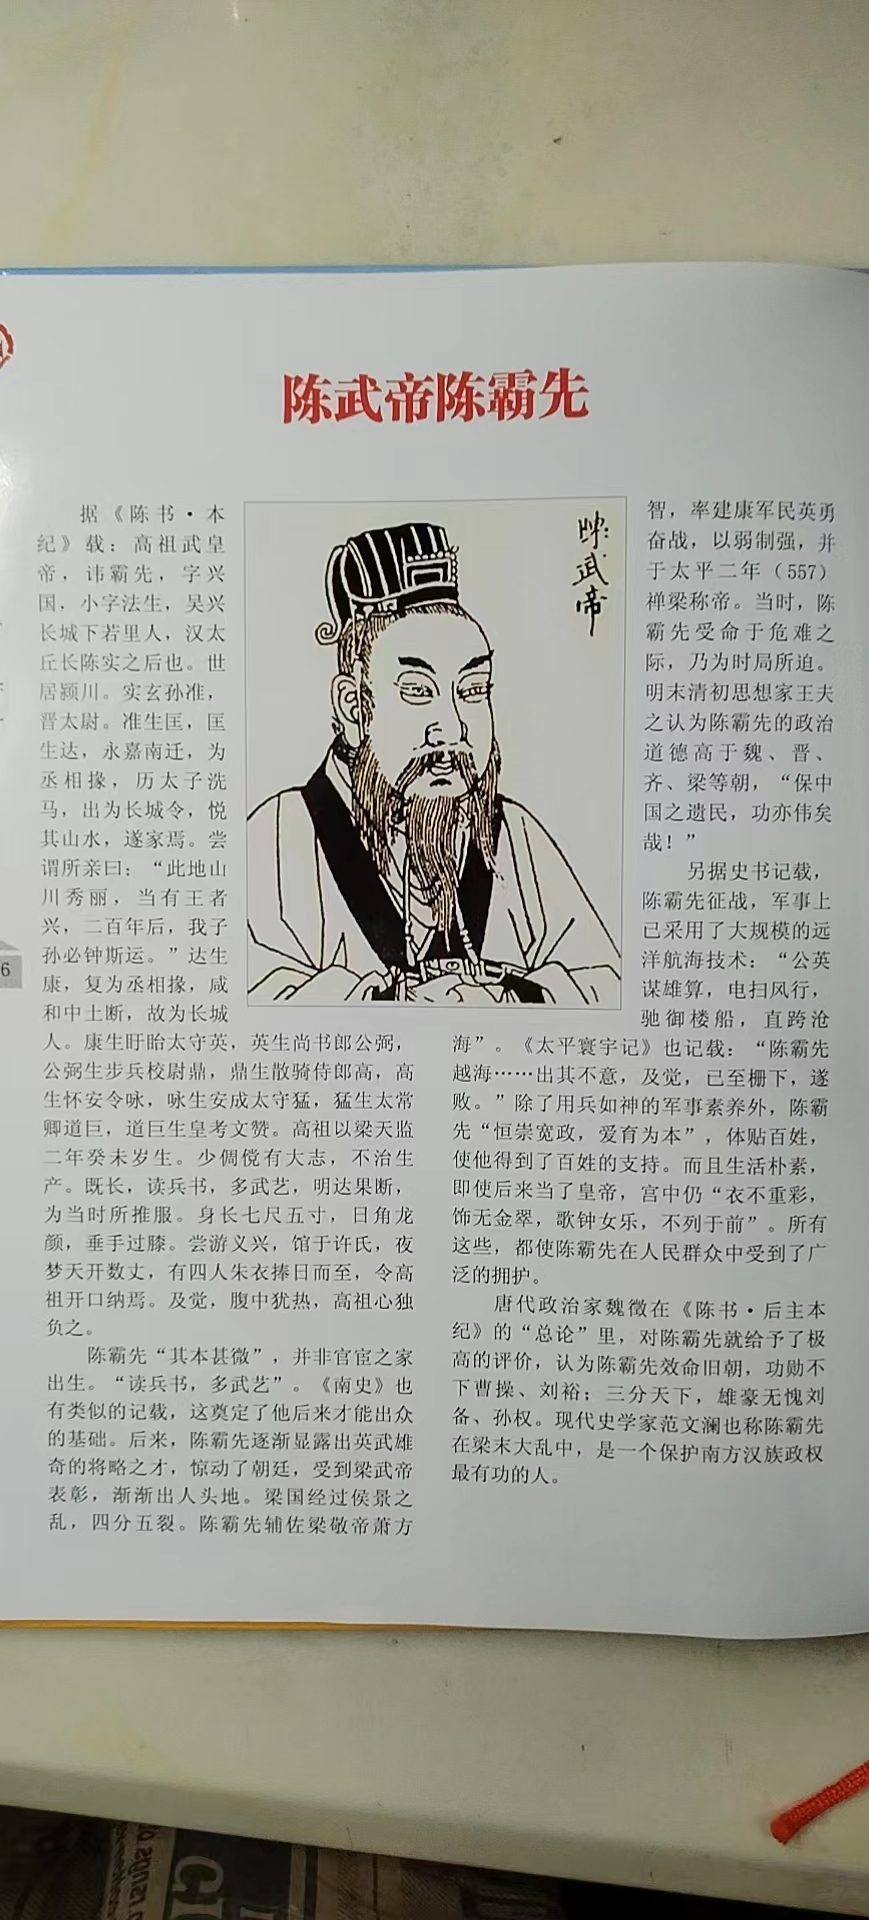 陈武帝陈霸先
据《陈书·本
纪》载：高祖武皇
帝，讳霸先，字兴
国，小字法生，吴兴
长城下若里人，汉太
丘长陈实之后也。世
居颍川。实玄孙准，
晋太尉。准生匡，匡
生达，永嘉南迁，为
丞相掾，历太子洗
马，出为长城令，悦
其山水，遂家焉。尝
谓所亲曰：“此地山
川秀丽，当有王者
兴，二百年后，我子
孙必钟斯运。”达生
康，复为丞相掾，咸
和中土断，故为长城
人。康生盱眙太守英，英生尚书郎公弼，
公弼生步兵校尉鼎，鼎生散骑侍郎高，高
生怀安令咏，咏生安成太守猛，猛生太常
卿道巨，道巨生皇考文赞。高祖以梁天监
二年癸未岁生。少倜傥有大志，不治生
产。既长，读兵书，多武艺，明达果断，
为当时所推服。身长七尺五寸，日角龙
颜，垂手过膝。尝游义兴，馆于许氏，夜
梦天开数丈，有四人朱衣捧日而至，令高
祖开口纳焉。及觉，腹中犹热，高祖心独
负之。
陈霸先“其本甚微”，并非官宦之家
出生。“读兵书，多武艺”。《南史》也
有类似的记载，这奠定了他后来才能出众
的基础。后来，陈霸先逐渐显露出英武雄
奇的将略之才，惊动了朝廷，受到梁武帝
表彰，渐渐出人头地。梁国经过侯景之
乱，四分五裂。陈霸先辅佐梁敬帝萧方
陈武帝
智，率建康军民英勇
奋战，以弱制强，并
于太平二年（557）
禅梁称帝。当时，陈
霸先受命于危难之
际，乃为时局所迫。
明末清初思想家王夫
之认为陈霸先的政治
道德高于魏、晋、
齐、梁等朝，“保中
国之遗民，功亦伟矣
哉！”
另据史书记载，
陈霸先征战，军事上
已采用了大规模的远
洋航海技术：“公英
谋雄算，电扫风行，
驰御楼船，直跨沧
海”。《太平寰宇记》也记载：“陈霸先
越海……出其不意，及觉，已至栅下，遂
败。”除了用兵如神的军事素养外，陈霸
先“恒崇宽政，爱育为本”，体贴百姓，
使他得到了百姓的支持。而且生活朴素，
即使后来当了皇帝，宫中仍“衣不重彩，
饰无金翠，歌钟女乐，不列于前”。所有
这些，都使陈霸先在人民群众中受到了广
泛的拥护。
唐代政治家魏徵在《陈书·后主本
纪》的“总论”里，对陈霸先就给予了极
高的评价，认为陈霸先效命旧朝，功勋不
下曹操、刘裕；三分天下，雄豪无愧刘
备、孙权。现代史学家范文澜也称陈霸先
在梁末大乱中，是一个保护南方汉族政权
最有功的人。
6